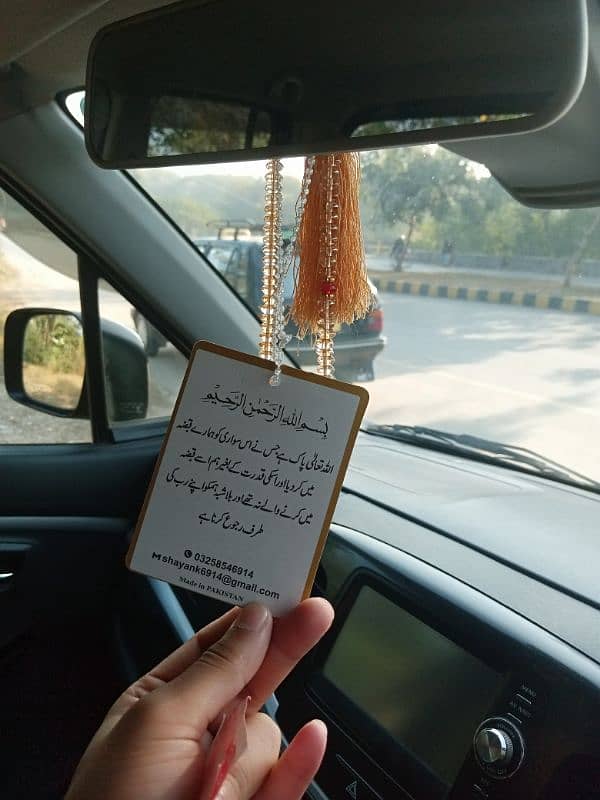 بِسْمِ اللهِ الرَّحْمٰنِ الرَّحِيْمِ
اللہ تعالیٰ پاک ہے جس نے اس سواری کو ہمارے قبضہ
میں کر دیا اور اسکی قدرت کے بغیر ہم اسے قبضہ
میں کرنے والے نہ تھے اور بلا شبہ ہمکو اپنے رب کی
طرف رجوع کرنا ہے
03258546914
shayank6914@gmail.com
Made in PAKISTAN
MENU